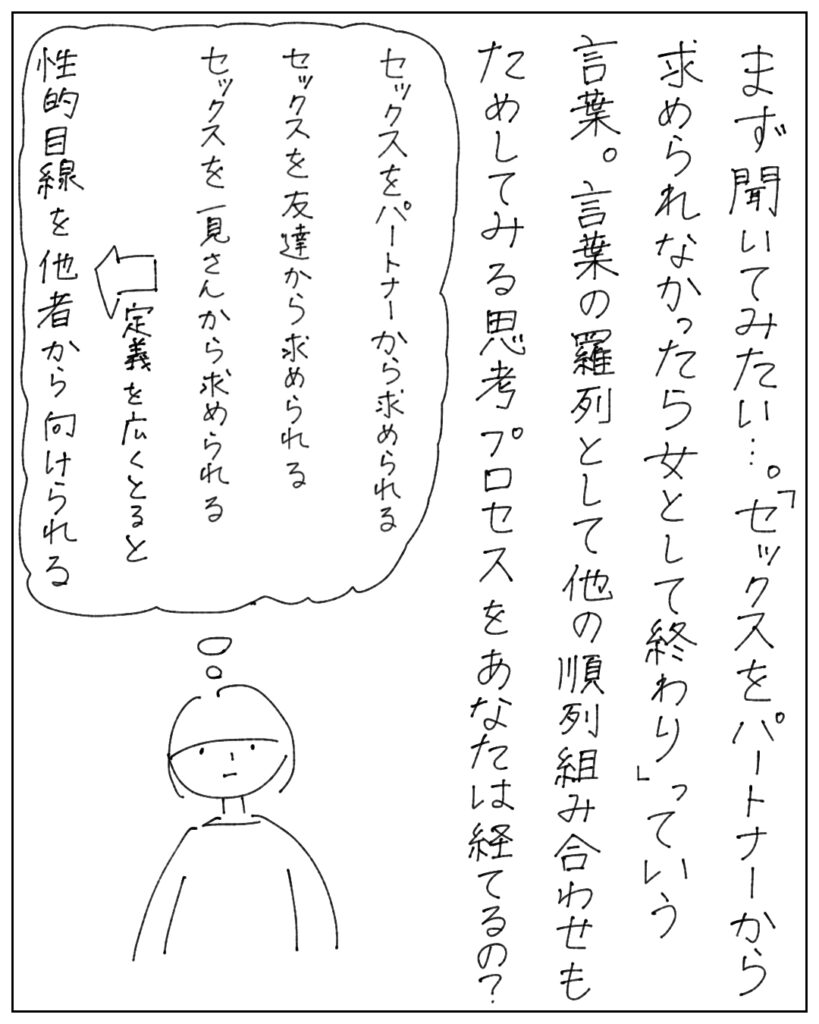 まず聞いてみたい…。「セックスをパートナーから
求められなかったら女として終わり」っていう
言葉。言葉の羅列として他の順列組み合わせも
ためしてみる思考プロセスをあなたは経てるの?
セックスをパートナーから求められる
セックスを友達から求められる
セックスを一見さんから求められる
定義を広くとると
性的目線を他者から向けられる